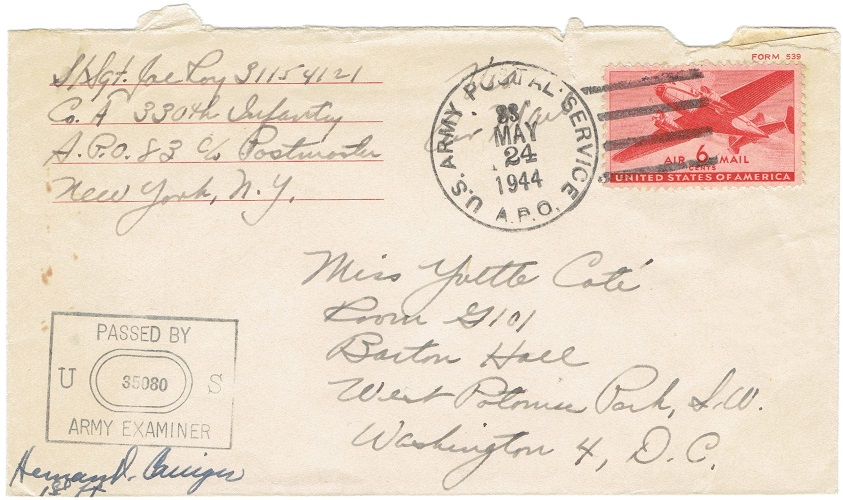 S/Sgt. Joe Roy 31154121
Co. A 330th Infantry
A.P.O. 83 c/o Postmaster
New York, N.Y.
FORM 539
U.S. ARMY POSTAL SERVICE
83
MAY
24
1944
A.P.O.
AIR 6 MAIL
CENTS
UNITED STATES OF AMERICA
Miss Yvette Coté
Room G101
Barton Hall
West Potomac Park, S.W.
Washington 4, D.C.
PASSED BY
U 35080 S
ARMY EXAMINER
1st Lt